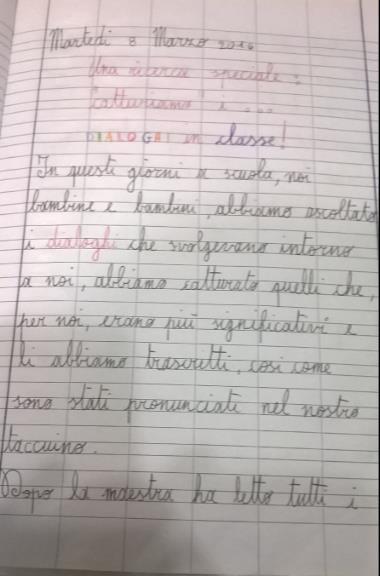 Martedì 8 Marzo 2016
Una ricerca speciale:
Catturiamo i ...
DIALOGHI in classe!
In questi giorni a scuola, noi
bambine e bambini, abbiamo ascoltato
i dialoghi che svolgevano intorno
a noi, abbiamo catturato quelli che,
per noi, erano più significativi e
li abbiamo trascritti, così come
sono stati pronunciati nel nostro
taccuino.
Dopo la maestra ha letto tutti i